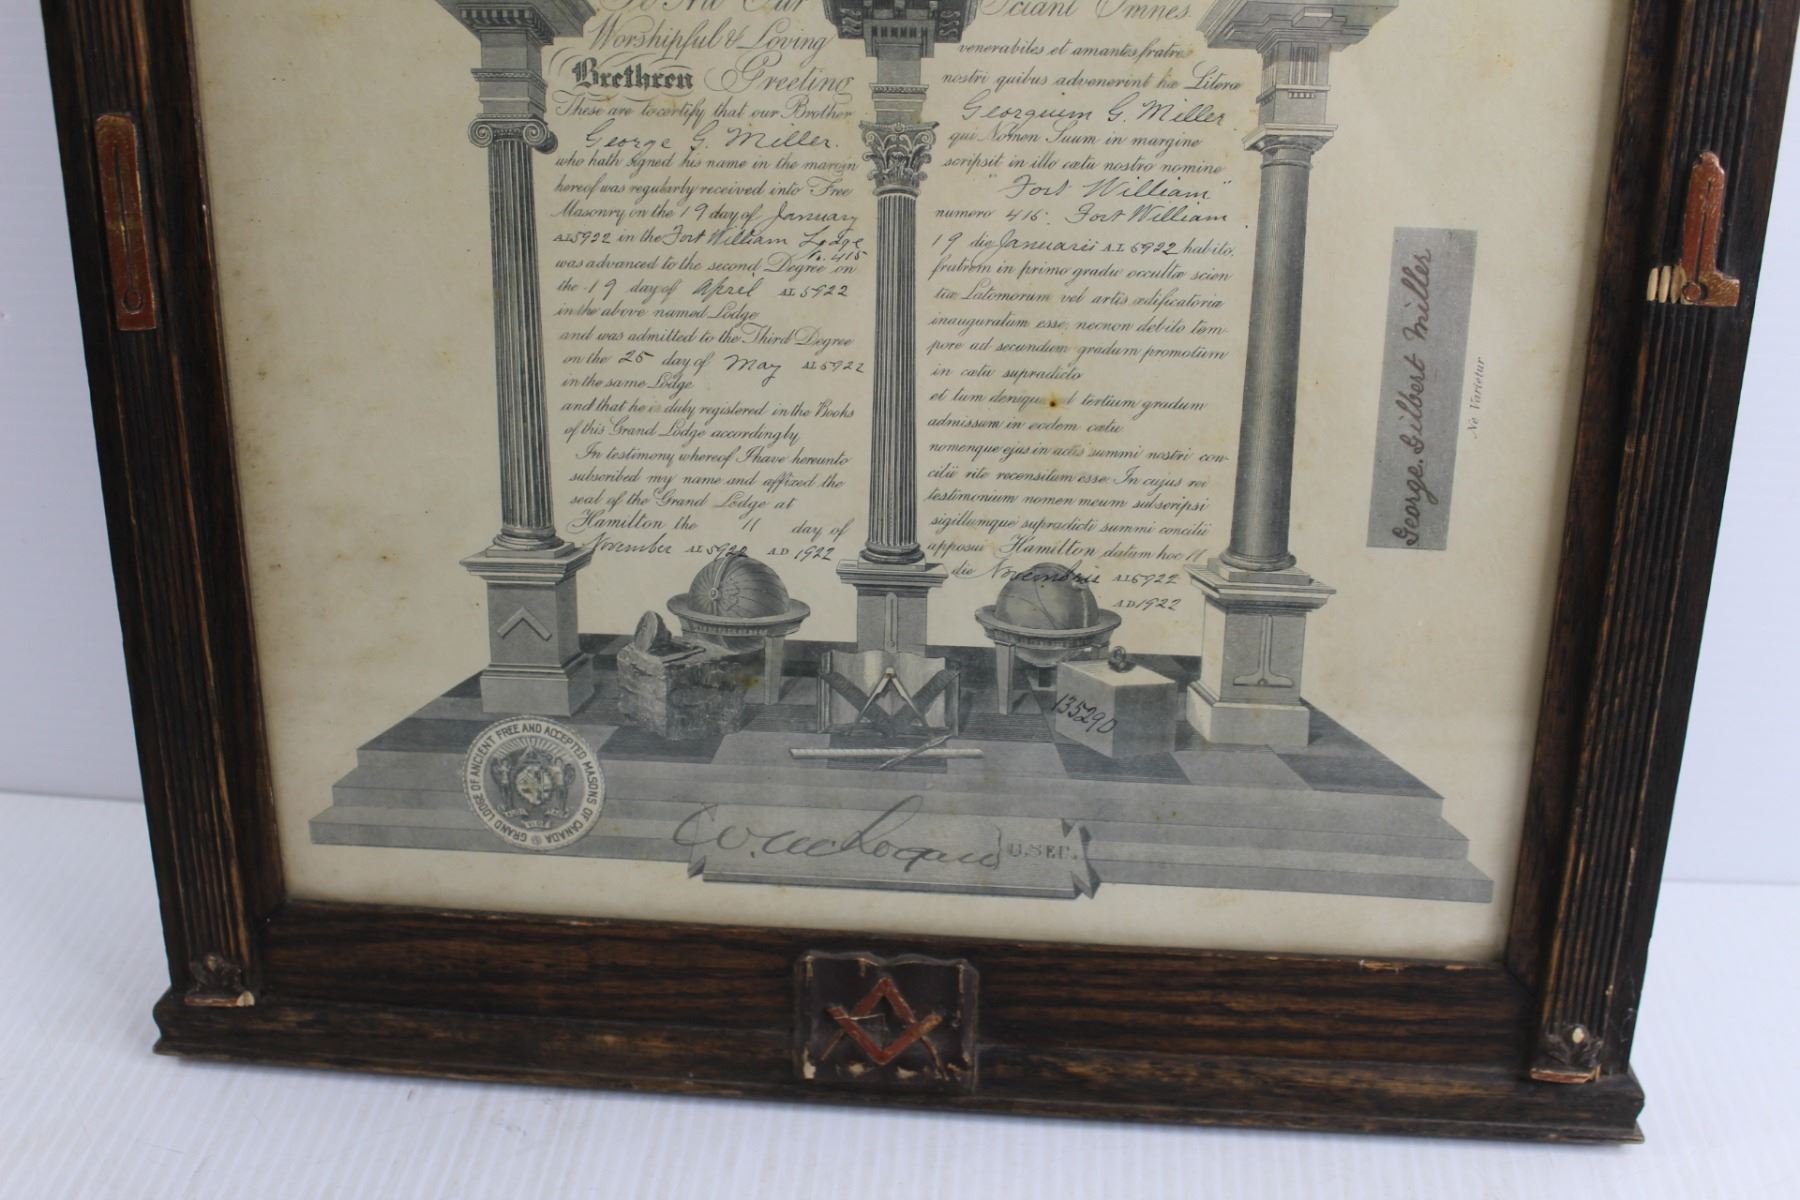 To All Our
Worshipful & Loving
Brethren Greeting
These are to certify that our Brother
George G. Miller.
who hath signed his name in the margin
hereof was regularly received into Free
Masonry on the 19 day of January
AL5922 in the Fort William Lodge
No. 415
was advanced to the second Degree on
the 19 day of April AL 5922
in the above named Lodge
and was admitted to the Third Degree
on the 25 day of May AL 5922
in the same Lodge
and that he is duly registered in the Books
of this Grand Lodge accordingly
In testimony whereof I have hereunto
subscribed my name and affixed the
seal of the Grand Lodge at
Hamilton the 11 day of
November AL 5922 A.D 1922
Sciant Omnes
venerabiles et amantes fratres
nostri quibus advenerint hæ Literæ
Georgium G. Miller
qui Nomen Suum in margine
scripsit in illo cœtu nostro nomine
"Fort William"
numero 415. Fort William
19 die Januarii A.L 5922 habito,
fratrem in primo gradu occultæ scien-
tiæ Latomorum vel artis ædificatoriæ
inauguratum esse; necnon debito tem-
pore ad secundum gradum promotum
in cœtu supradicto
et tum denique ad tertium gradum
admissum in eodem cœtu
nomenque ejus in actis summi nostri con-
cilii rite recensitum esse. In cujus rei
testimonium nomen meum subscripsi
sigillumque supradicti summi concilii
apposui Hamilton datum hoc 11
die Novembris A.L 5922
A.D. 1922
George. Gilbert Miller
Ne Varietur
135290
GRAND LODGE OF ANCIENT FREE AND ACCEPTED MASONS OF CANADA
AUDI VIDE TACE
W. M. Logan G. SEC.